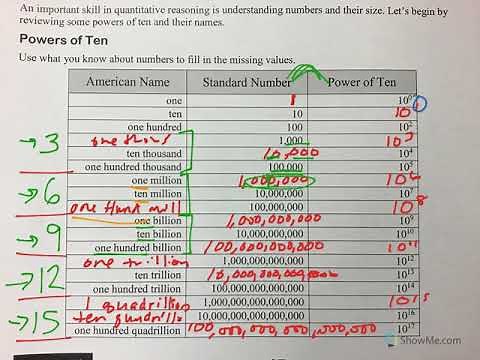 An important skill in quantitative reasoning is understanding numbers and their size. Let's begin by
reviewing some powers of ten and their names.
Powers of Ten
Use what you know about numbers to fill in the missing values.
American Name Standard Number Power of Ten
one 1 10⁰ 1
ten 10 10
one hundred 100 10²
→3 one thous 1,000 10³
ten thousand 10,000 10⁴
one hundred thousand 100,000 10⁵
one million 1,000,000 10⁶
→6 ten million 10,000,000 10⁷
one hund mill 100,000,000 10⁸
one billion 1,000,000,000 10⁹
→9 ten billion 10,000,000,000 10¹⁰
one hundred billion 100,000,000,000 10¹¹
one trillion 1,000,000,000,000 10¹²
→12 ten trillion 10,000,000,000,000 10¹³
one hundred trillion 100,000,000,000,000 10¹⁴
1 quadrillion 1,000,000,000,000,000 10¹⁵
→15 ten quadrillio 10,000,000,000,000,000 10¹⁶
one hundred quadrillion 100,000,000,000,000,000 10¹⁷
ShowMe.com